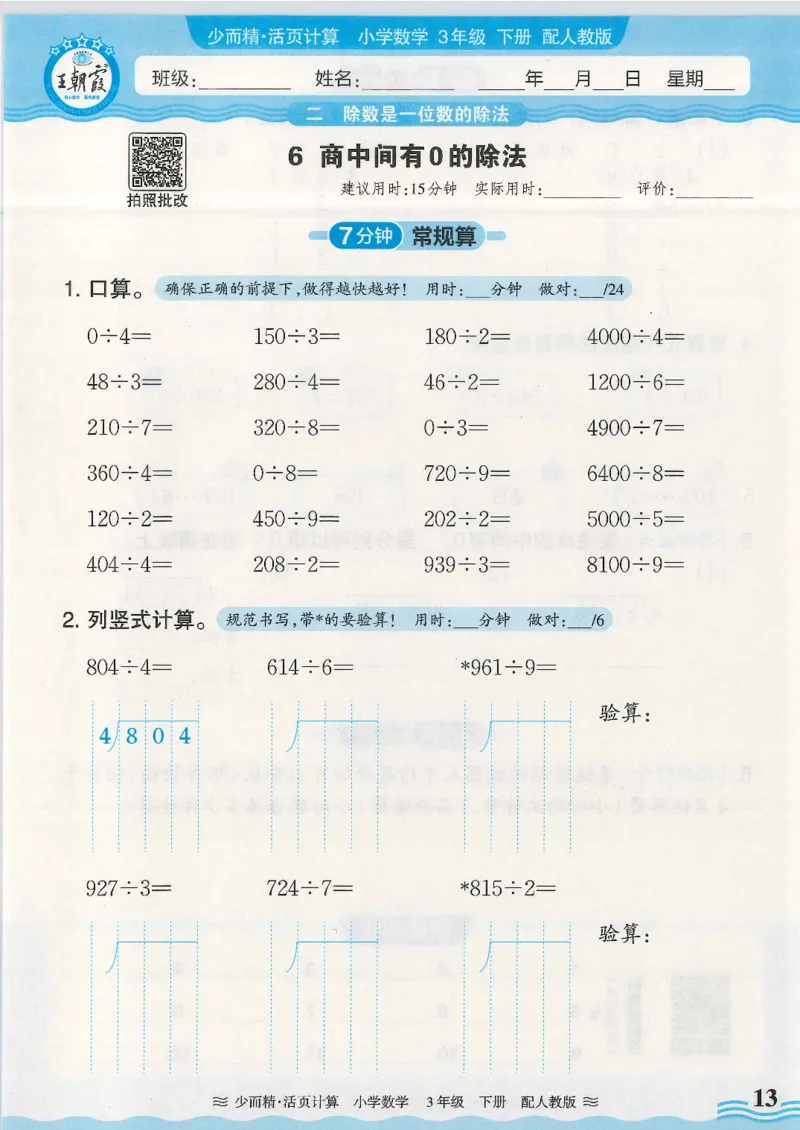 少而精·活页计算 小学数学 3年级 下册 配人教版
王朝霞
班级: 姓名: 年 月 日 星期
二 除数是一位数的除法
6 商中间有0的除法
拍照批改
建议用时:15分钟 实际用时: 评价:
7分钟 常规算
1. 口算。 确保正确的前提下,做得越快越好! 用时:__分钟 做对:__/24
0÷4= 150÷3= 180÷2= 4000÷4=
48÷3= 280÷4= 46÷2= 1200÷6=
210÷7= 320÷8= 0÷3= 4900÷7=
360÷4= 0÷8= 720÷9= 6400÷8=
120÷2= 450÷9= 202÷2= 5000÷5=
404÷4= 208÷2= 939÷3= 8100÷9=
2. 列竖式计算。 规范书写,带*的要验算! 用时:__分钟 做对:__/6
804÷4= 614÷6= *961÷9=
验算:
4 8 0 4
927÷3= 724÷7= *815÷2=
验算:
少而精·活页计算 小学数学 3年级 下册 配人教版
13